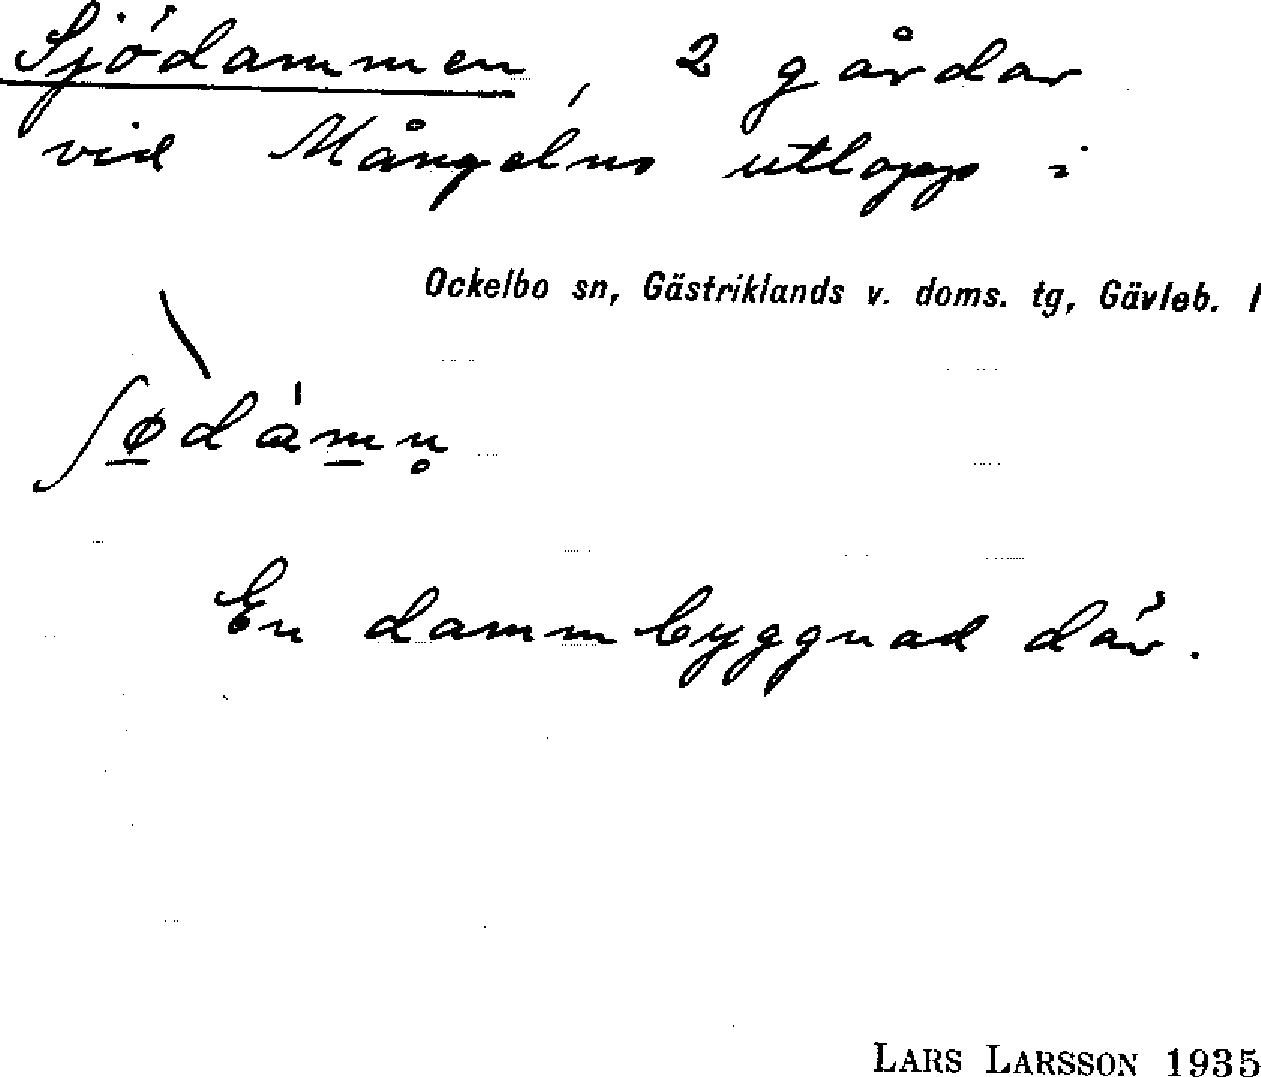 Sjödammen, 2 gårdar
vid Mångelns utlopp i
Ockelbo sn, Gästriklands v. doms. tg, Gävleb. l
ʃø̲̀dám̲n̥
En dammbyggnad där.
LARS LARSSON 1935